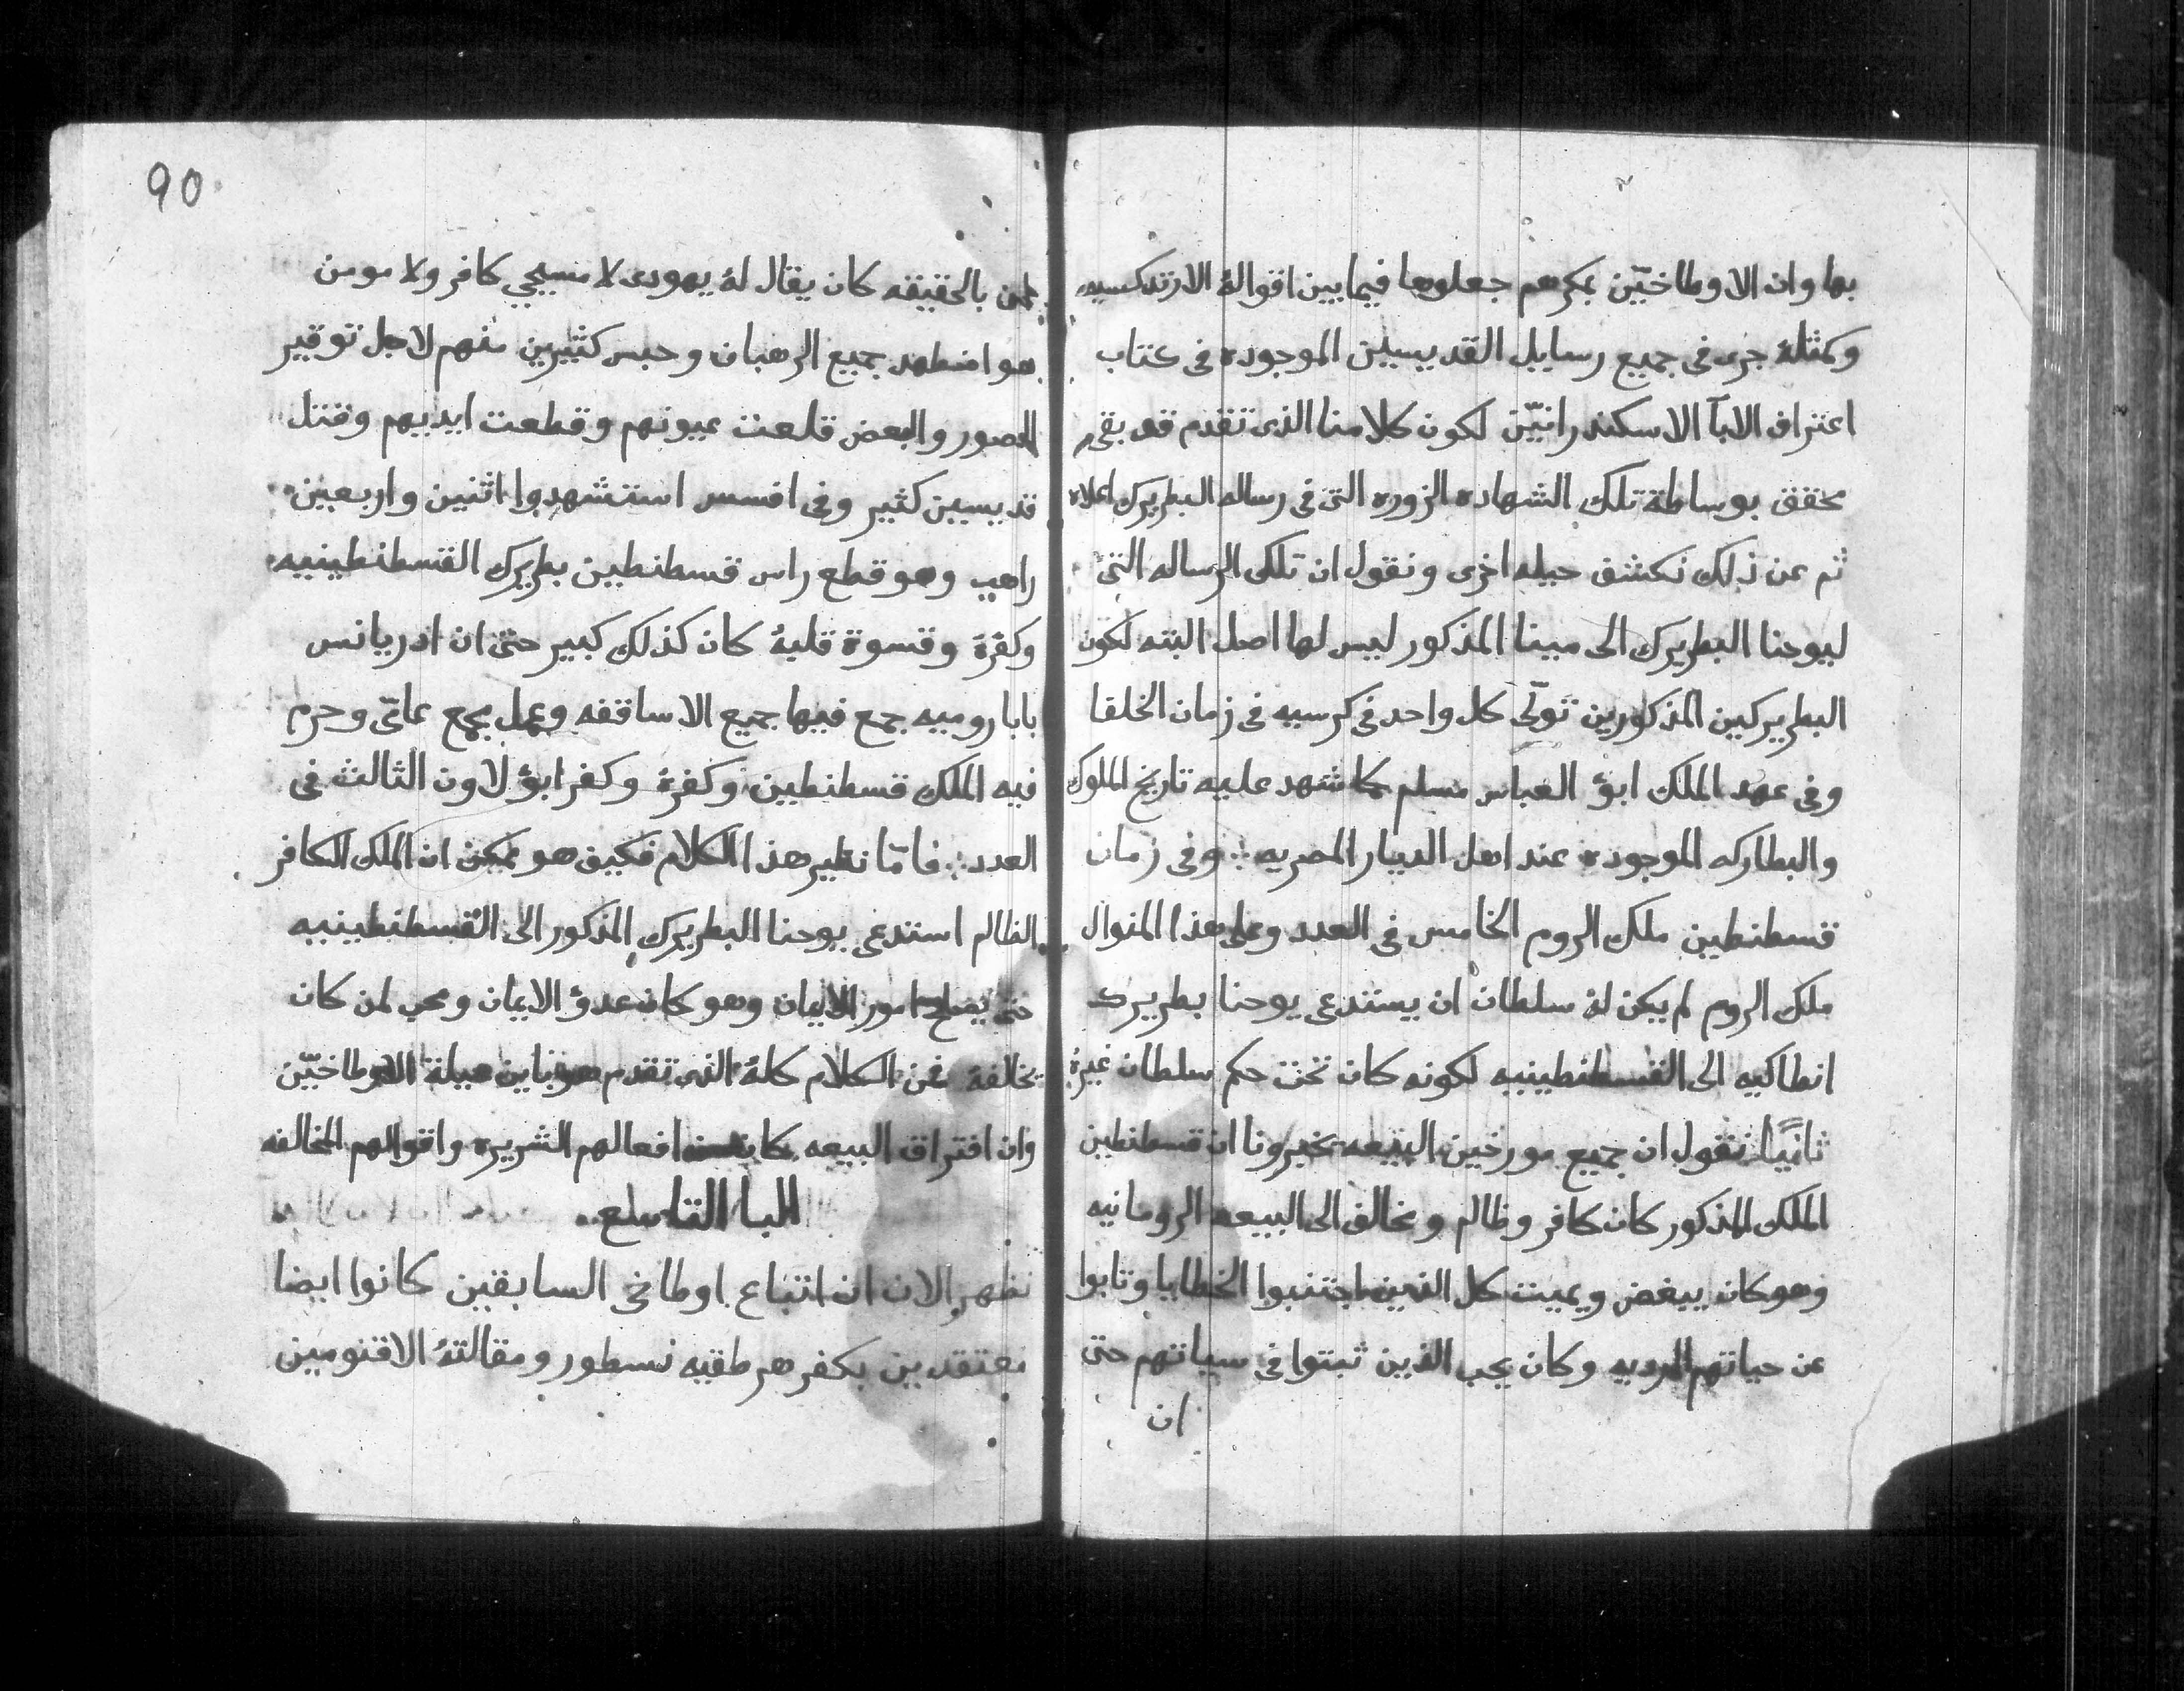 بها وان الاوطاخيّن بمكرهم جعلوها فيما بين اقوالهُ الارتدكسيه
وكمثلهُ جرى فى جميع رسايل القديسين الموجوده فى كتاب
اعتراف الابآ الاسكندرانيّن لكون كلامنا الذى تقدم قد بقى
محقق بوساطة تلك الشهاده الزوره التى فى رساله البطريرك اعلاه
ثم عن ذلك نكشف حيله اخرى ونقول ان تلك الرساله التى
ليوحنا البطريرك الى مينا المذكور ليس لها اصل البته لكون
البطريركين المذكورين تولّى كل واحد فى كرسيه فى زمان الخلفا
وفى عهد الملك ابو العباس مسلم كما شهد عليه تاريخ الملوك
والبطاركه الموجوده عند اهل الديار المصريه وفى زمان
قسطنطين ملك الروم الخامس فى العدد وعلى هذا المنوال
ملك الروم لم يكن لهُ سلطان ان يستدعى يوحنا بطريرك
انطاكيه الى القسطنطينيه لكونه كان تحت حكم سلطان غيرهُ
ثانيًا نقول ان جميع مورخين البيعه يخبرونا ان قسطنطين
الملك المذكور كان كافر وظالم ومخالف الى البيعه الرومانيه
وهو كان يبغض ويميت كل الذين اجتنبوا الخطايا وتابوا
عن حياتهم الرديه وكان يحب الذين ثبتوا فى سياتهم حتى
ان
90
بالحقيقه كان يقال لهُ يهودى لا مسيحي كافر ولا مومن
هو اضطهد جميع الرهبان وحبس كثيرين منهم لاجل توقير
الصور والبعض قلعت عيونهم وقطعت ايديهم وقتل
قديسين كثير وفى افسس استشهدوا اثنين واربعين
راهب وهو قطع راس قسطنطين بطريرك القسطنطينيه
وكفرهُ وقسوة قلبهُ كان كذلك كبير حتى ان ادريانس
بابا روميه جمع فيها جميع الاساقفه وعمل مجمع عامّى وحرم
فيه الملك قسطنطين وكفرهُ وكفر ابوُ لاون الثالث فى
العدد فامّا نظير هذا الكلام فكيف هو ممكن ان الملك الكافر
الظالم استدعى يوحنا البطريرك المذكور الى القسطنطينيه
حتى يصلح امور الايمان وهو كان عدوُ الايمان ومحب لمن كان
يخالفه فمن الكلام كلهُ الذى تقدم هوذا باين حيلة الاوطاخيّن
وان افتراق البيعه كان افعالهم الشريره واقوالهم المخالفه
البا التاسع
نظهر الان ان اتباع اوطاخى السابقين كانوا ايضا
معتقدين بكفر هرطقيه نسطور ومقالتهُ الاقنومين